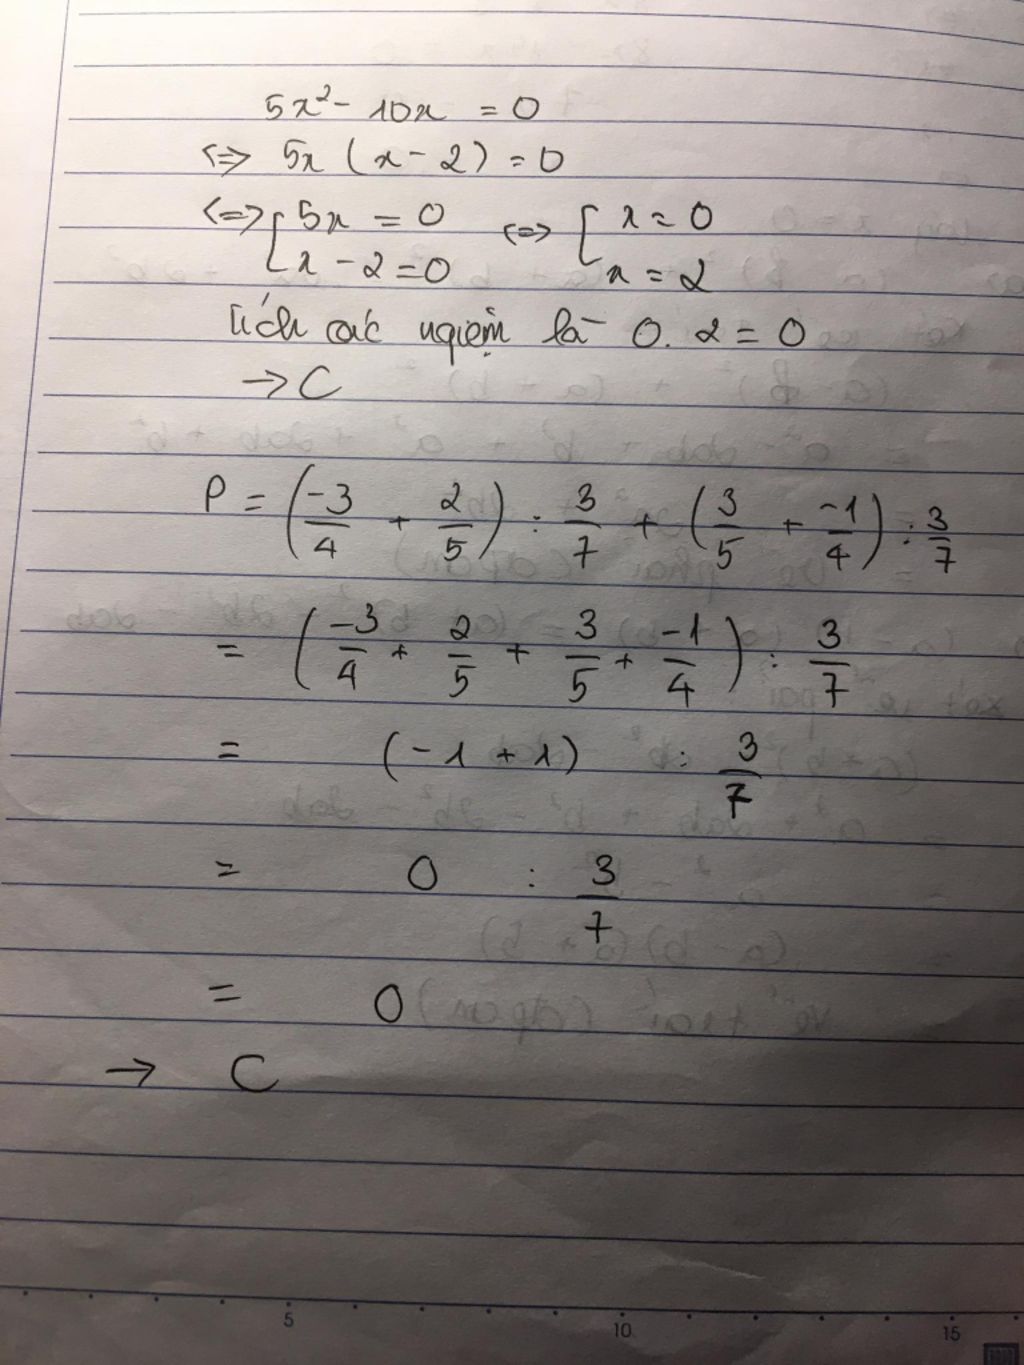 5x² - 10x = 0
<=> 5x (x - 2) = 0
<=> [ 5x = 0 <=> [ x = 0
x - 2 = 0 x = 2
Tích các ngiệm là 0. 2 = 0
→ C
P = (-3/4 + 2/5) : 3/7 + (3/5 + -1/4) : 3/7
= (-3/4 + 2/5 + 3/5 + -1/4) : 3/7
= (-1 + 1) : 3/7
= 0 : 3/7
= 0
→ C
5 10 15